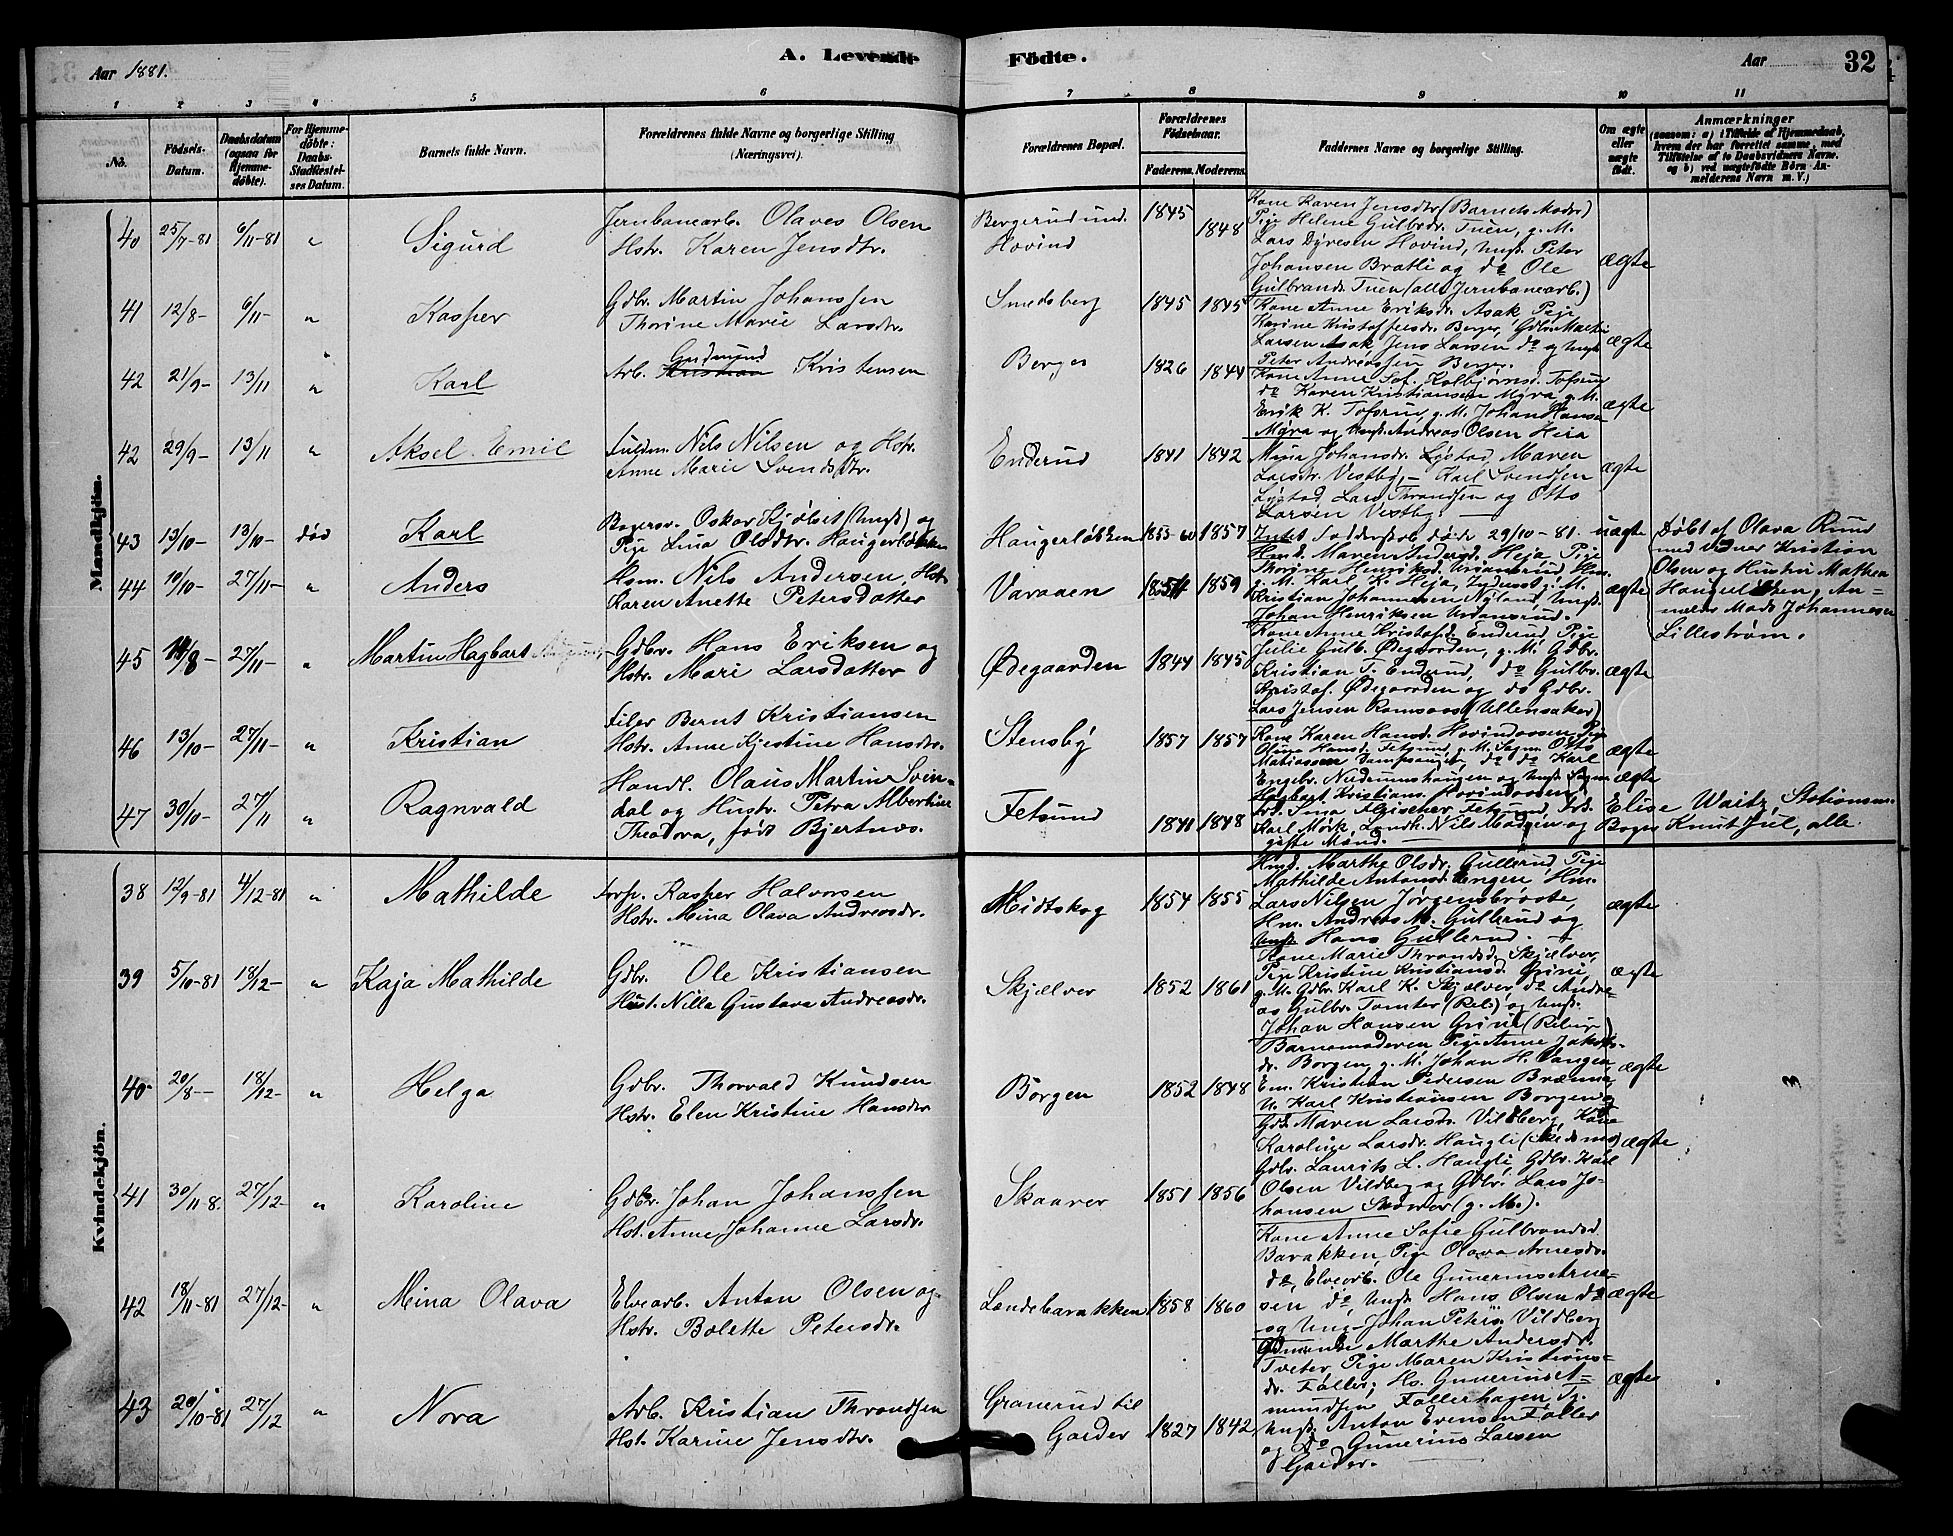 Aar 1881.
A. Levende Födte.
Aar
32
1 2 3 4 5 6 7 8 9 10 11
No.
Födsels-
Datum.
Daabsdatum
(ogsaa for
Hjemme-
döbte).
For Hjemme-
döbte:
Daabs-
Stadfæstel-
ses Datum.
Barnets fulde Navn.
Forældrenes fulde Navne og borgerlige Stilling
(Næringsvei).
Forældrenes Bopæl.
Forældrenes
Födselsaar.
Faderens. Moderens.
Faddernes Navne og borgerlige Stilling.
Om ægte
eller
uægte
födt.
Anmærkninger
(saasom: a) i Tilfælde af Hjemmedaab,
hvem der har forrettet samme, med
Tilföielse af to Daabsvidners Navne,
og b) ved uægtefödte Börn An-
melderens Navn m. V.)
Mandkjön.
40 25/7-81 6/11-81 " Sigurd
Jernbanearb. Olaves Olsen
Hstr. Karen Jensdtr.
Bergerud und.
Hovind
1845 1848
Kone Karen Jensdtr (Barnets Moder)
Pige Helene Gulbrdr. Tuen, g. M.
Lars Dyresen Hovind, Ungk. Peter
Johansen Bratli og do Ole
Gulbrands. Tuen (alle Jernbanearb.)
ægte
41 12/8- 6/11- " Kasper
Gdbr. Martin Johanssen
Thorine Marie Larsdr.
Smedsberg
1845 1845
Kone Anne Eriksdr. Asak Pige
Karine Kristoffersdr. Berger, Gdbr. Martin
Larsen Asak Jens Larsen do og Ungk.
Peter Andreassen Berger.
ægte
42 21/9- 13/11 " Karl
Gudmund
Arb. Kristian Kristensen
Berger
1826 1844
Kone Anne Sof. Kolbjørnsd. Tofsrud
do Karen Kristiansen Myra g. M.
Erik K. Tofsrud, g. M. Johan Hansen
Myra og Ungk. Andreas Olsen Heia
ægte
42 29/9- 13/11 " Aksel Emil
Fuldm. Nils Nilsen og Hstr.
Anne Marie Svendsdtr.
Enderud
1841 1842
Mina Johansdr. Løstad, Maren
Larsdr. Vestby, - Karl Svendsen
Løstad Lars Throndsen og Otto
Larsen Vestby.
ægte
43 13/10- 13/10- død Karl
Bagersv. Oskar Kjølset (Ungk) og
Pige Lina Olsdtr. Haugerløkken
Haugerløkken
1857
Intet Fadderskab døde 29/10-81.
uægte
Døbt af Olava Ruud
med Vidner Kristian
Olsen og Hustru Mathea
Haugerløkken, An=
melder Mads Johannesen
Lillestrøm.
44 10/10- 27/11- " Anders
Hsm. Nils Andersen, Hst.
Karen Anette Petersdatter
Varaaen
1859
Hmk. Maren Andersd. Heja Pige
g. M. Karl K. Heja,
Kristian Johannesen Nyland, Ungk.
Johan Henriksen
ægte
45 27/11- " Martin Hagbart
Gdbr. Hans Eriksen og
Hstr. Mari Larsdatter
Ødegaarden
1844 1845
Kone Anne Kristofsd. Enderud, Pige
Julie Gulb. Ødegaarden, g. M. Gdbr.
Kristian T. Enderud, do Gulbr.
Kristof. Ødegaarden og do Gdbr.
Lars Jensen Ramsaas (Ullensaker)
ægte
46 13/10- 27/11- " Kristian
Filer Bernt Kristiansen
Hstr. Anne Kjestine Hansdr.
Stensby
1857 1857
Kone Karen Hansd. Hovindoosen, Pige
Oline Hansd. Fetsund, g. M. Sagm. Otto
Matiassen do do Karl
Engebr. Nerdrumshaugen og Ungk. Sagm.
Hagbart Kristians. Hovindoosen
ægte
47 30/10- 27/11 " Ragnvald
Handl. Olaus Martin Svin-
dal og Hustr. Petra Albertine
Theodora, født Bjertnæs.
Fetsund
1840 1848
Frk. Ima Fleischer, Fetsund, Frk. Elise Waitz, Stationsm.
Karl Mørk, Landh. Nils Madsen og Bager Knut Jul, alle
gifte Mænd.
ægte
Kvindekjön.
38 12/9-81 4/12-81 " Mathilde
Kasper Halvorsen
Hstr. Mina Olava Andreasdr.
Midtskog
1854 1855
Hmd. Marthe Olsdr. Gullerud, Pige
Mathilde Antonsd. Engen Hm.
Lars Nilsen Jørgensbraate,
Hm. Andreas M. Gullerud og
Ungk. Hans Gullerud.
ægte
39 5/10-81 18/12- " Kaja Mathilde
Gdbr. Ole Kristiansen
Hust. Nilla Gustava Andreasdr.
Skjælver
1852 1861
Kone Marie Throndsd. Skjælver,
Pige Kristine Kristiansd. Grini,
g. M. Gdbr. Karl K. Skjælver, do Andre-
as Gulbr. Tomter (Rel.) og Ungk.
Johan Hansen Grini (Reling)
ægte
40 20/8- 18/12- " Helga
Gdbr. Thorvald Knudsen
Hstr. Elen Kristine Hansdr
Borgen
1852 1848
Barnemoderen Pige Anne Jakobs-
dr. Borgen, g. M. Johan H. Vangen
Em. Kristian Pedersen Brænna,
U. Karl Kristiansen Borgen
ægte
41 30/11-8. 27/12- " Karoline
Gdbr. Johan Johanssen
Hst. Anne Johanne Larsdr.
Skaarer
1851 1856
Gdk. Maren Larsdr. Vildberg, Kone
Karoline Larsdr. Haugli (Skedsmo)
Gdbr. Laurits L. Haugli, Gdbr. Karl
Olsen Vildberg og Gdbr. Lars Jo-
hansen Skarer (g. M.).
ægte
42 18/11-81 27/12- " Mina Olava
Elvearb. Anton Olsen og
Hstr. Bolette Petersdr.
Lændebarakken
1858 1860
Kone Anne Sofie Gulbrandsd.
Barakken, Pige Olava Arnesdr.
do, Elvearb. Ole Gunerius Arne-
sen do, Ungk. Hans Olsen do
og Ung. Johan Peters. Vildberg
ægte
43 20/10-81 27/12 " Nora
Arb. Kristian Throndsen
Hst. Karine Jensdtr.
Granerud til
Garder
1827 1842
Marthe Andersdr.
Tveter, Pige Maren Kristians-
dr. Faller, Hs. Gunerius
mundsen Fallerhagen,
Ungk. Anton Evensen Faller
og do Gunerius Larsen
Garder.
ægte